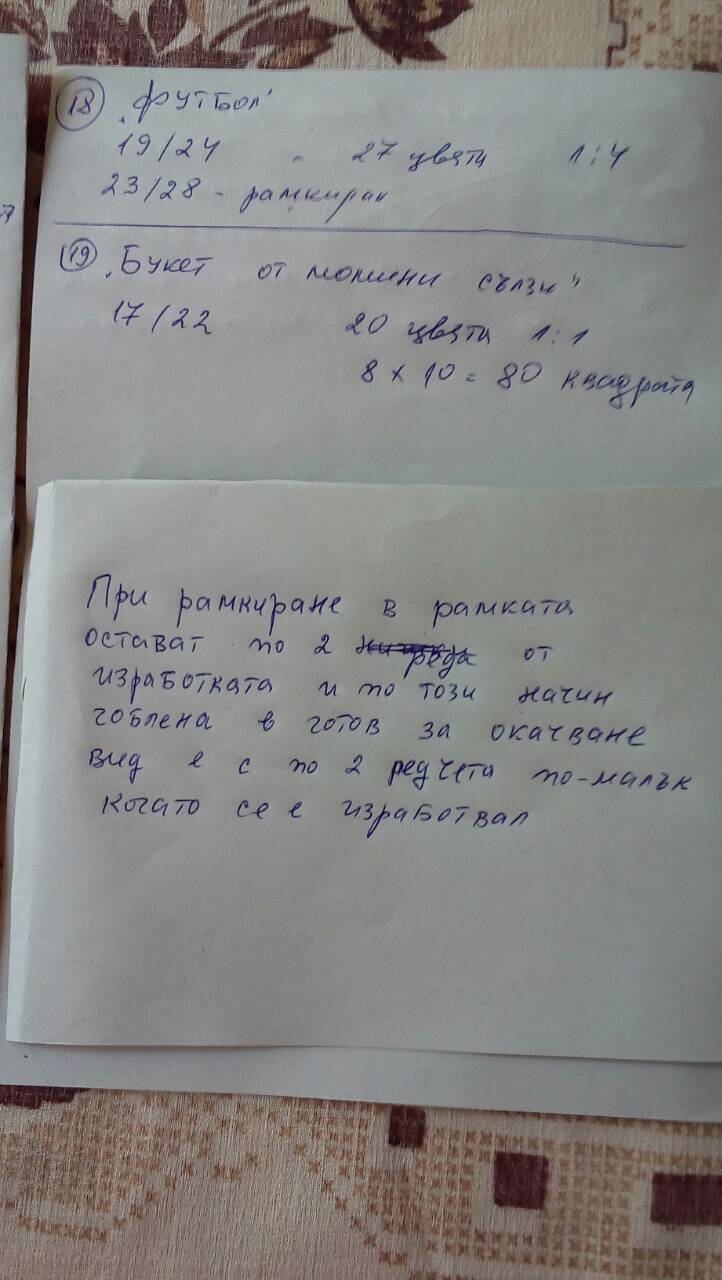 18 „Футбол"
19/24 - 27 цвята 1:4
23/28 - рамкиран
19 „Букет от момини сълзи"
17/22 20 цвята 1:1
8 x 10 = 80 квадрата
При рамкиране в рамката
остават по 2 реда от
изработката и по този начин
гоблена в готов за окачване
вид е с по 2 редчета по-малък
когато се е изработвал